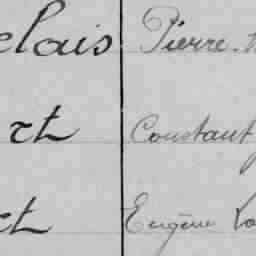 elais Pierre
rt Constant
ct Eugène